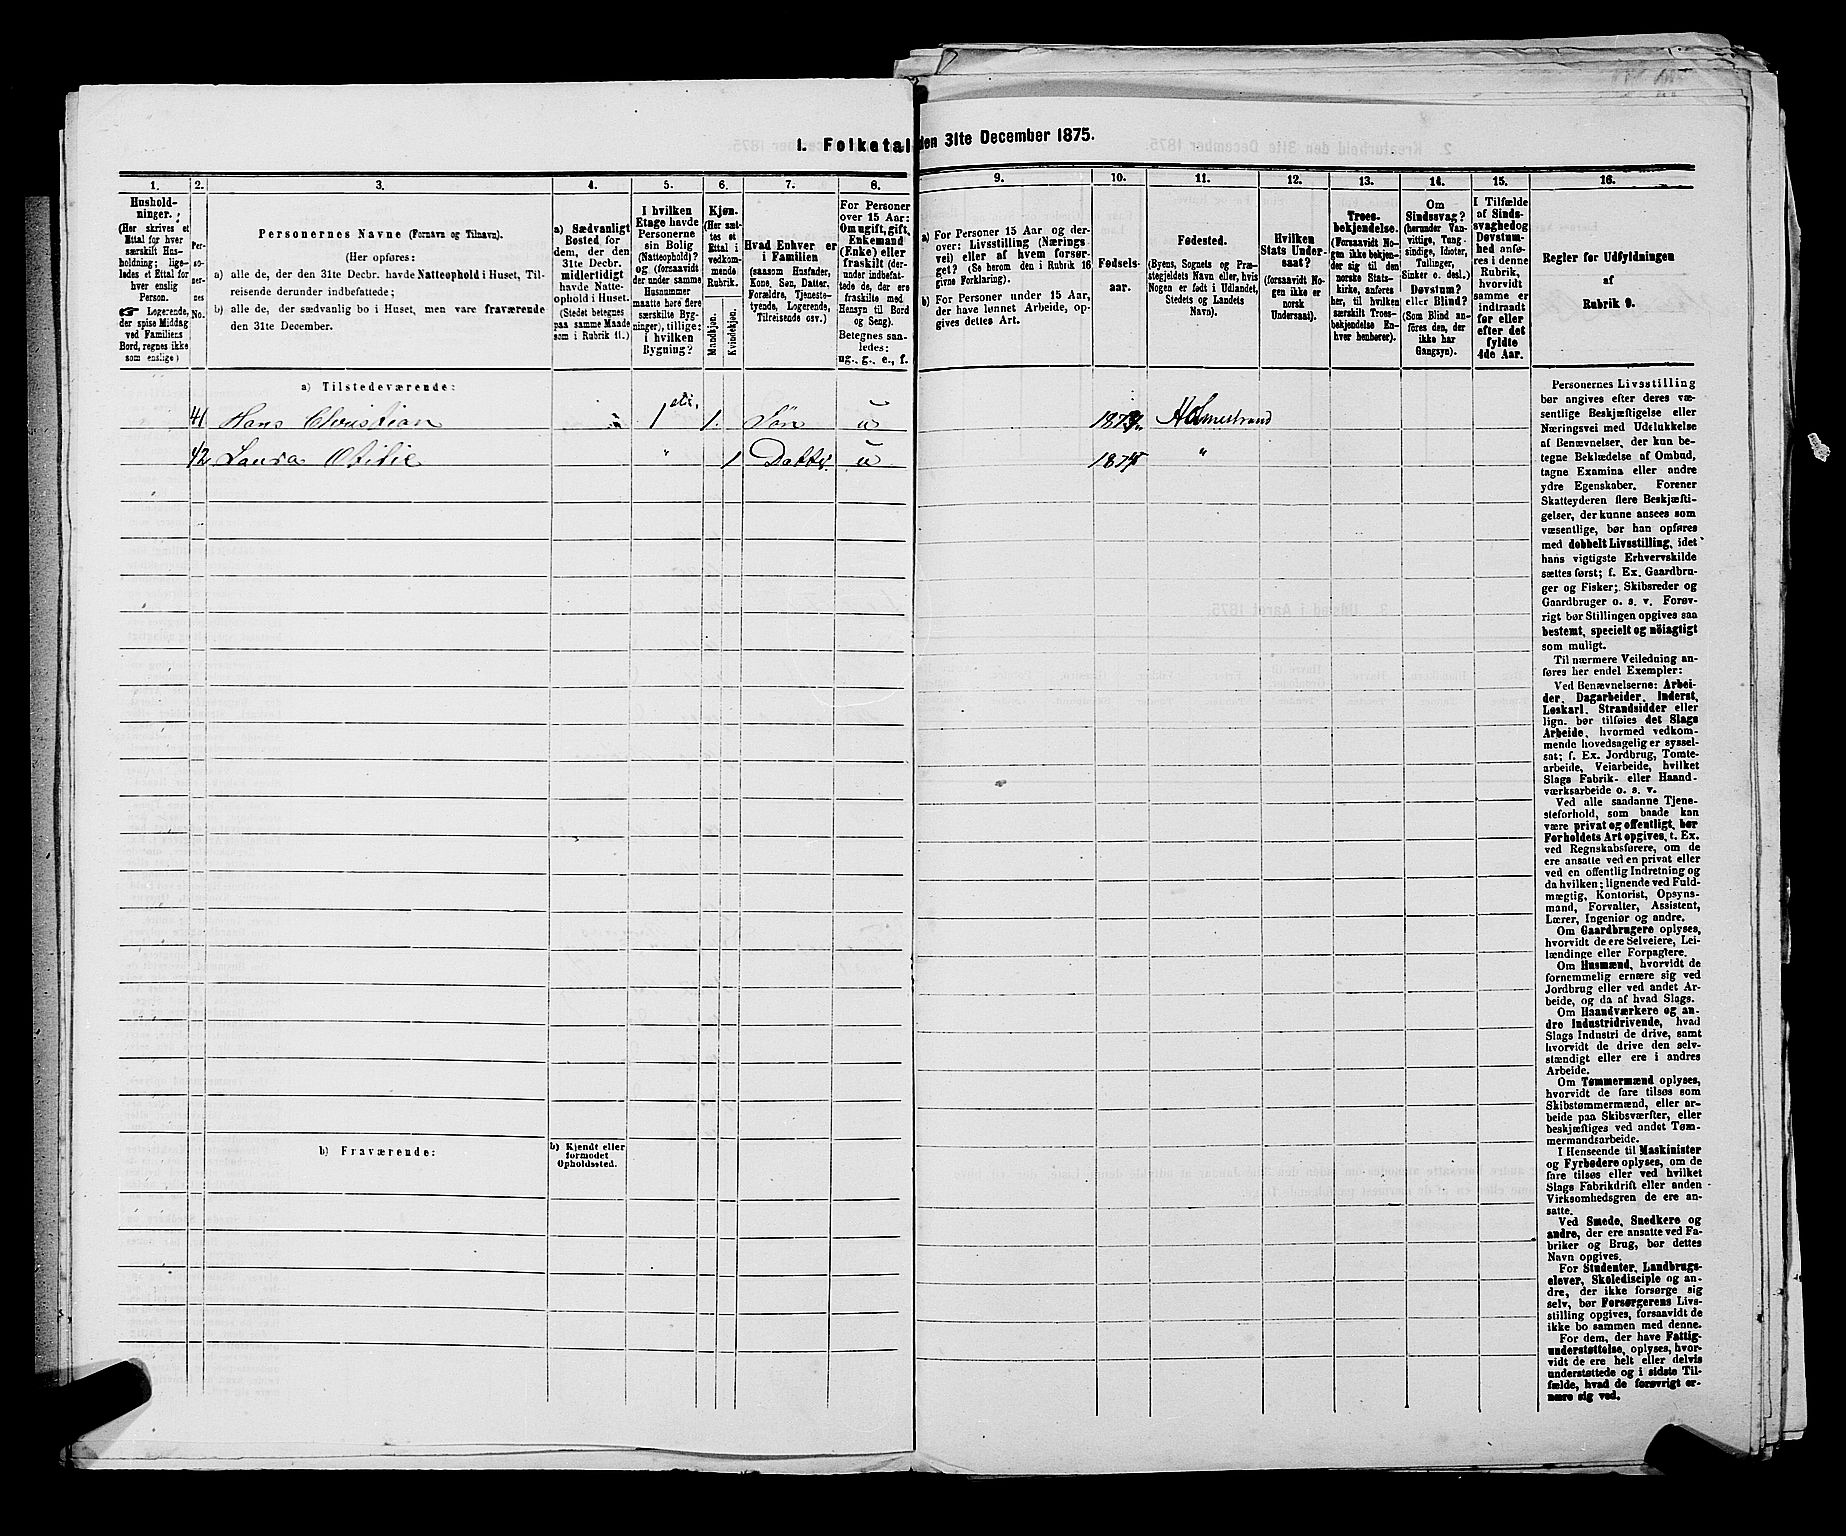 1. Folketal den 31te December 1875.
1.
2.
3.
4.
5.
6.
7.
8.
9.
10.
11.
12.
13.
14.
15.
16.
Hushold-
ninger.
(Her skrives et
Ettal for hver
særskilt Hus-
holdning; lige-
ledes et Ettal for
hver enslig
Person.
☛ Logerende,
der spise Middag
ved Familiens
Bord, regnes ikke
som enslige)
Per-
so-
ner-
nes
No.
Personernes Navne (Fornavn og Tilnavn).
(Her opføres:
a) alle de, der den 31te Decbr. havde Natteophold i Huset, Til-
reisende derunder indbefattede;
b) alle de, der sædvanlig bo i Huset, men vare fraværende
den 31te December.
a) Sædvanligt
Bosted for
dem, der den
31te Decbr.
midlertidigt
havde Natte-
ophold i Huset.
(Stedet betegnes
paa samme Maade
som i Rubrik 11.)
I hvilken
Etage havde
Personerne
sin Bolig
(Natteophold)?
og (forsaavidt
der under samme
Husnummer
maatte høre flere
særskilte Byg-
ninger), tillige:
i hvilken
Bygning?
Kjøn.
(Her sæt-
tes et
Ettal i
vedkom-
mende
Rubrik.
Mandkjøn.
Kvindekjøn.
Hvad Enhver er
i Familien
(saasom Husfader,
Kone, Søn, Datter,
Forældre, Tjeneste-
tyende, Logerende,
Tilreisende osv.)
For Personer
over 15 Aar:
Om ugift, gift,
Enkemand
(Enke) eller
fraskilt (der-
under indbefat-
tede de, der ere
fraskilte med
Hensyn til Bord
og Seng).
Betegnes saa-
ledes:
ug., g., e., f.
a) For Personer 15 Aar og der-
over: Livsstilling (Nærings-
vei) eller af hvem forsør-
get? (Se herom den i Rubrik 16
givne Forklaring).
b) For Personer under 15 Aar,
der have lønnet Arbeide, op-
gives dettes Art.
Fødsels-
aar.
Fødested.
(Byens, Sognets og Præ-
stegjeldets Navn eller, hvis
Nogen er født i Udlandet,
Stedets og Landets
Navn).
Hvilken
Stats Under-
saat?
(forsaavidt No-
gen ikke er
norsk
Undersaat).
Troes-
bekjendelse.
(Forsaavidt No-
gen ikke bekjen-
der sig til den
norske Stats-
kirke, anføres
her, til hvilken
særskilt Troes-
bekjendelse En-
hver henhører).
Om
Sindssvag?
(herunder Van-
vittige, Tung-
sindige, Idioter,
Tullinger,
Sinker o. desl.)
Døvstum?
eller Blind?
(Som Blind an-
føres den, der
ikke har
Gangsyn).
I Tilfælde
af Sinds-
svaghed og
Døvstum-
hed anfø-
res i denne
Rubrik,
hvorvidt
samme er
indtraadt
før eller
efter det
fyldte
4de Aar.
Regler for Udfyldningen
af
Rubrik 9.
a) Tilstedeværende:
41 Hans Christian 1 eti. 1. Søn u 1873 Holmestrand
42 Laura Otilie " 1 Datter u 1875 "
b) Fraværende:
b) Kjendt eller
formodet
Opholdssted.
Personernes Livsstilling
bør angives efter deres væ-
sentlige Beskjæftigelse eller
Næringsvei med Udelukkelse
af Benævnelser, der kun be-
tegne Beklædelse af Ombud,
tagne Examina eller andre
ydre Egenskaber. Forener
Skatteyderen flere Beskjæfti-
gelser, der kunne ansees som
væsentlige, bør han opføres
med dobbelt Livsstilling, idet
hans vigtigste Erhvervskilde
sættes først; f. Ex. Gaardbru-
ger og Fisker; Skibsreder og
Gaardbruger o. s. v. Forøv-
rigt bør Stillingen opgives saa
bestemt, specielt og nøiagtigt
som muligt.
Til nærmere Veiledning an-
føres her endel Exempler:
Ved Benævnelserne: Arbei-
der, Dagarbeider, Inderst,
Løskarl, Strandsidder eller
lign. bør tilføies det Slags
Arbeide, hvormed vedkom-
mende hovedsagelig er syssel-
sat; f. Ex. Jordbrug, Tomte-
arbeide, Veiarbeide, hvilket
Slags Fabrik- eller Haand-
værksarbeide o. s. v.
Ved alle saadanne Tjene-
steforhold, som baade kan
være privat og offentligt, bør
Forholdets Art opgives, t. Ex.
ved Regnskabsførere, om de
ere ansatte ved en privat eller
ved en offentlig Indretning og
da hvilken; lignende ved Fuld-
mægtig, Kontorist, Opsyns-
mand, Forvalter, Assistent,
Lærer, Ingeniør og andre.
Om Gaardbrugere oplyses,
hvorvidt de ere Selveiere, Lei-
lændinge eller Forpagtere.
Om Husmænd, hvorvidt de
fornemmelig ernære sig ved
Jordbrug eller ved andet Ar-
beide, og da af hvad Slags.
Om Haandværkere og an-
dre Industridrivende, hvad
Slags Industri de drive, samt
hvorvidt de drive den selv-
stændigt eller ere i andres
Arbeide.
Om Tømmermænd oplyses,
hvorvidt de fare tilsøs som
Skibstømmermænd, eller ar-
beide paa Skibsværfter, eller
beskjæftiges ved andet Tøm-
mermandsarbeide.
I Henseende til Maskinister
og Fyrbødere oplyses, om de
fare tilsøs eller ved hvilket
Slags Fabrikdrift eller anden
Virksomhedsgren de ere an-
satte.
Ved Smede, Snedkere og
andre, der ere ansatte ved Fa-
briker og Brug, bør dettes
Navn opgives.
For Studenter, Landbrugs-
elever, Skoledisciple og an-
dre, der ikke forsørge sig
selv, bør Forsørgerens Livs-
stilling opgives, forsaavidt de
ikke bo sammen med denne.
For dem, der have Fattig-
understøttelse, oplyses, hvor-
vidt de ere helt eller delvis
understøttede og i sidste Til-
fælde, hvad de forøvrigt er-
nære sig ved.